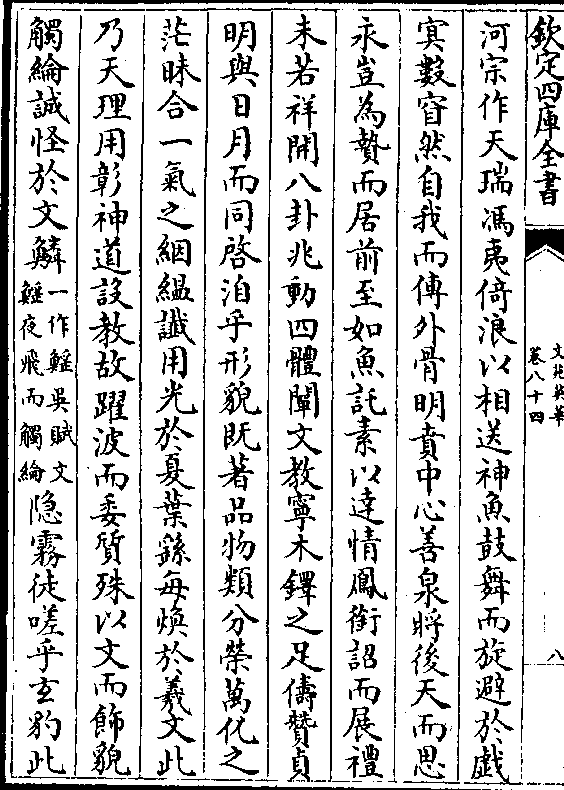 欽定四庫全書
文苑英華
卷八十四
八
河宗作天瑞馮夷倚浪以相送神魚鼓舞而旋避於戲
寘數窅然自我而傳外骨明賁中心善泉將後天而思
永豈為贄而居前至如魚託素以達情鳳銜詔而展禮
未若祥開八卦兆動四體闡文教寧木鐸之足儔贊貞
明與日月而同啓洎乎形貌既著品物類分榮萬化之
茫昧合一氣之絪縕讖用光於夏葉繇每煥於羲文此
乃天理用彰神道設教故躍波而委質殊以文而飾貌
觸綸誠怪於文鱗一作鰩吳賦文鰩夜飛而觸綸隐霧徒嗟乎玄豹此